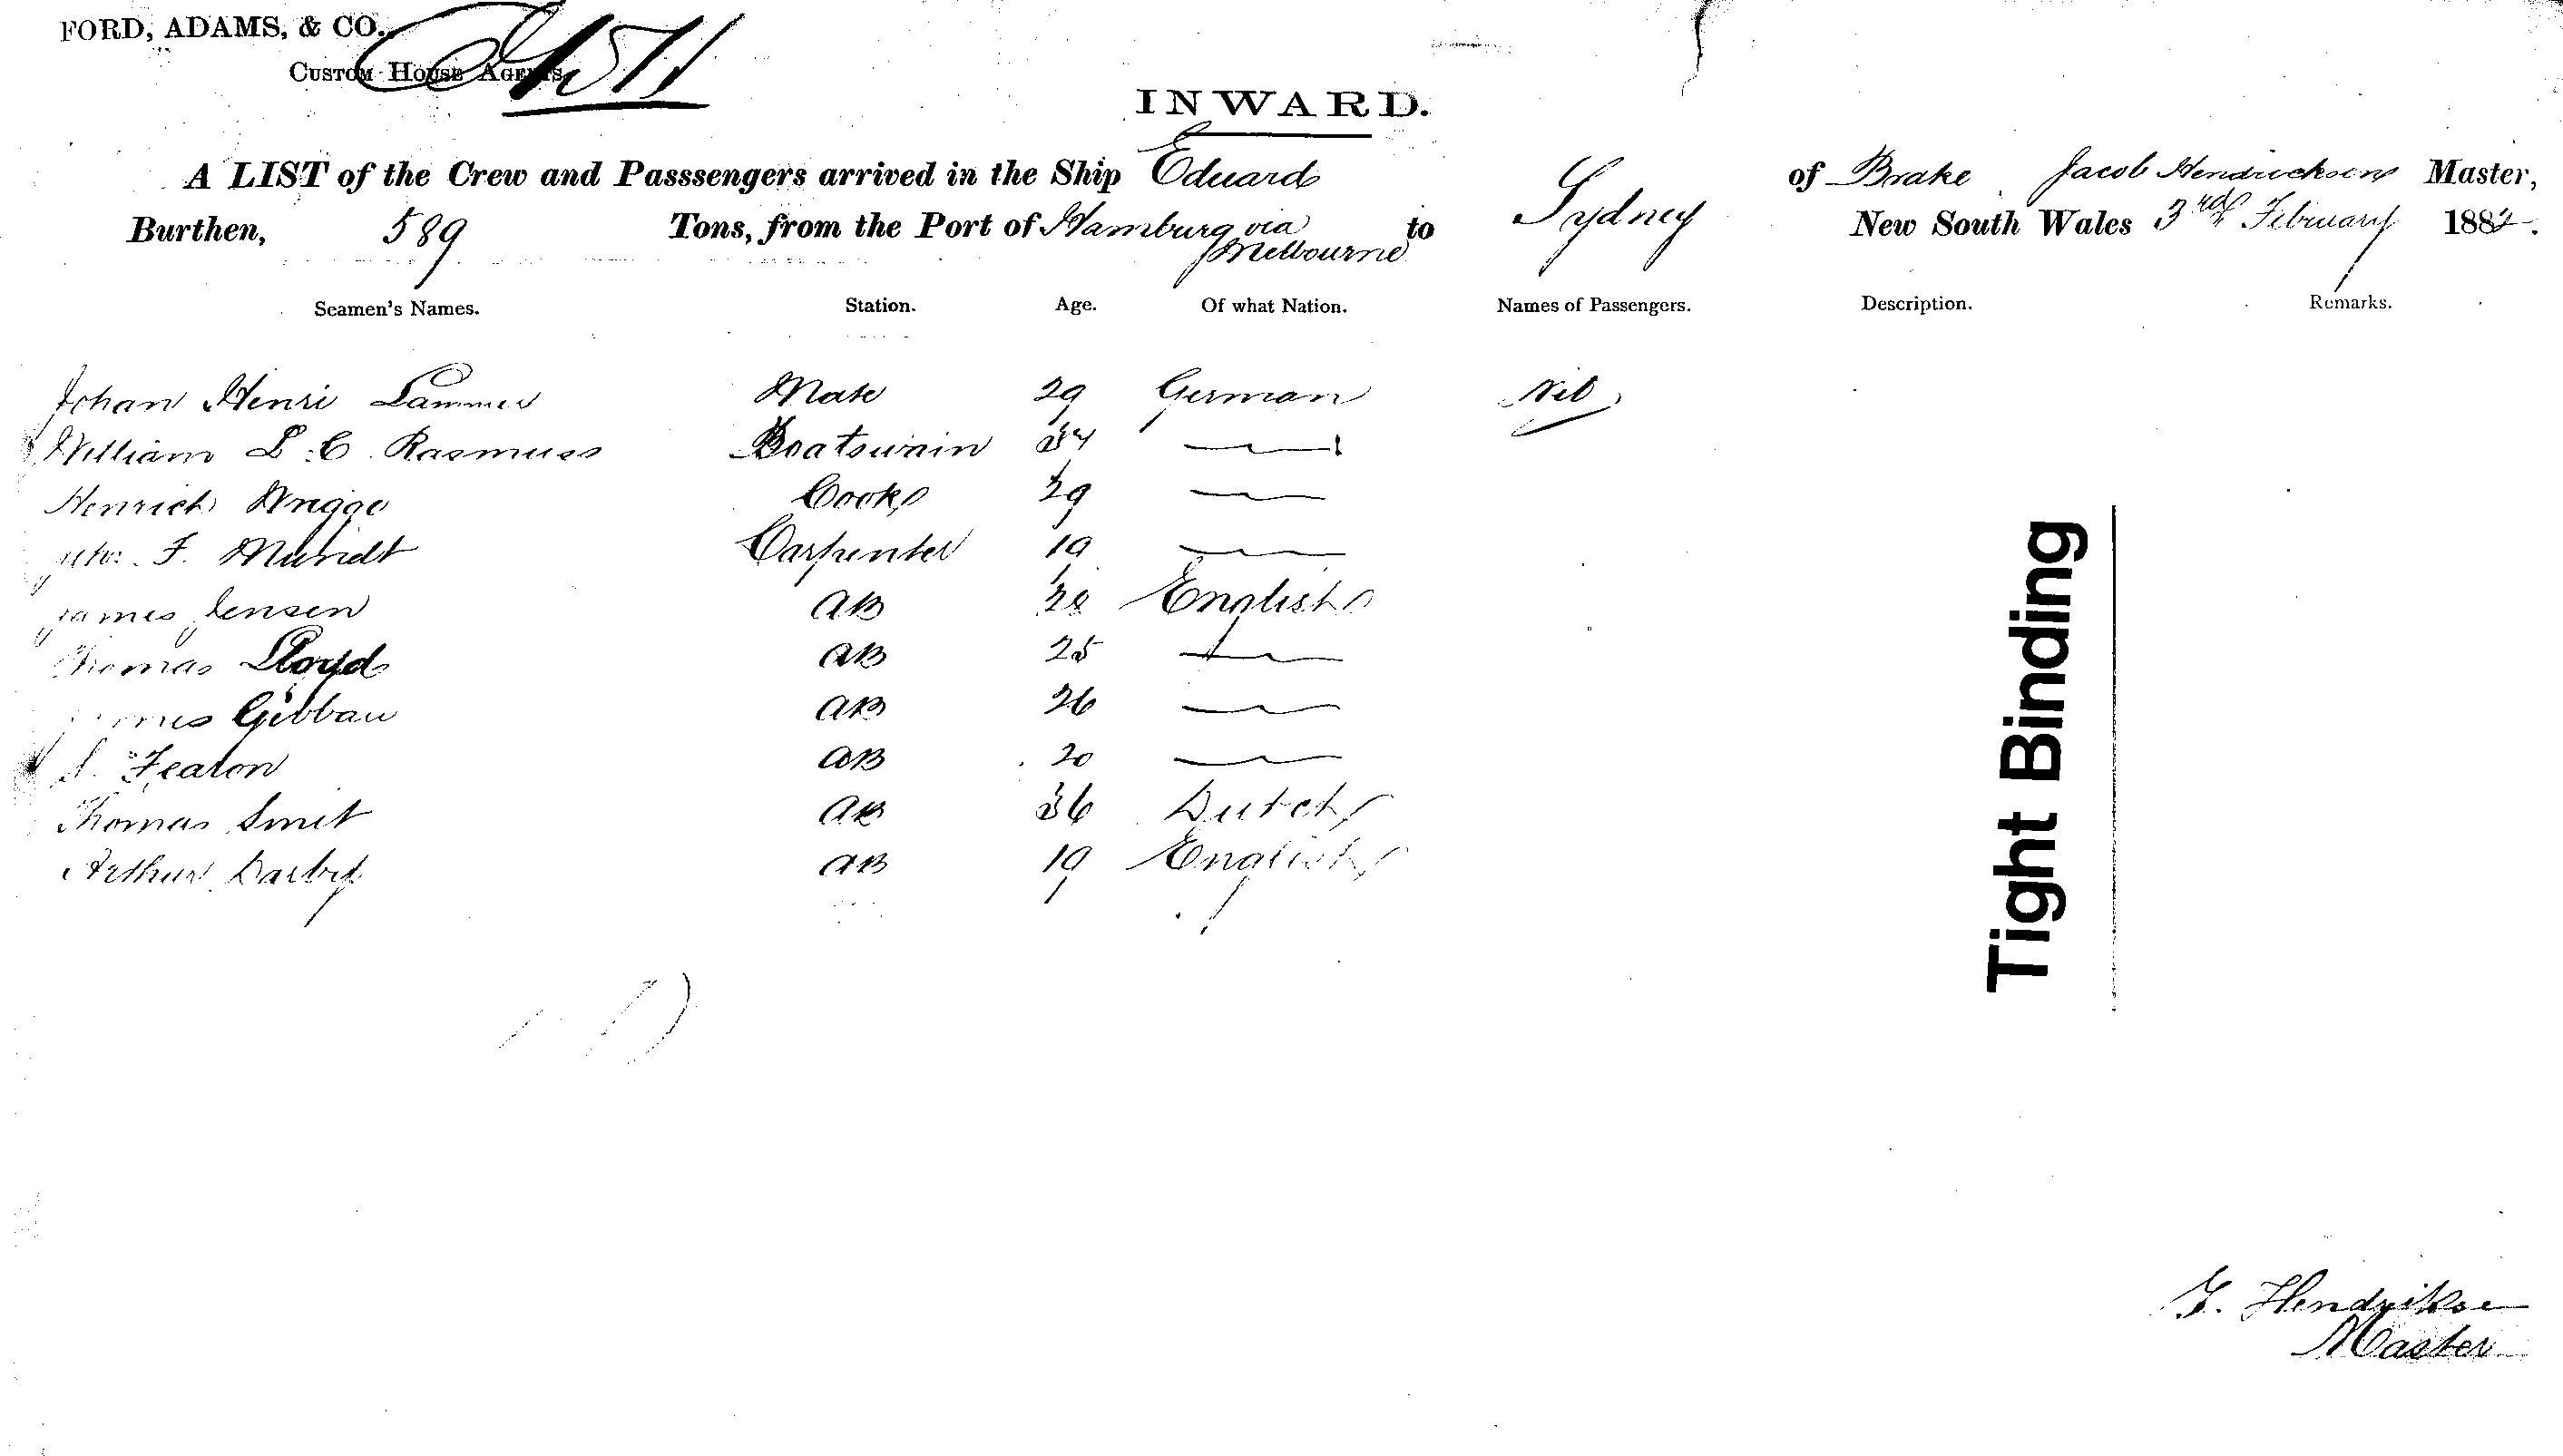 FORD, ADAMS, & CO.
CUSTOM HOUSE AGENTS.
INWARD.
A LIST of the Crew and Passsengers arrived in the Ship Eduard of Brake Jacob Hendricksen Master,
Burthen, 589 Tons, from the Port of Hamburg via Melbourne to Sydney New South Wales 3rd February 1882.
Seamen's Names. Station. Age. Of what Nation. Names of Passengers. Description. Remarks.
Johan Henri Lammer Mate 29 German Nil
William L. C. Rasmuss Boatswain 34
Henrich Cook 29
F. Mundt Carpenter 19
James Jensen AB 28 English
Thomas Lloyd AB 25
James Gibbau AB 26
Featon AB 20
Thomas Smit AB 36 Dutch
Arthur Darby AB 19 English
Tight Binding
J. Hendrikse
Master